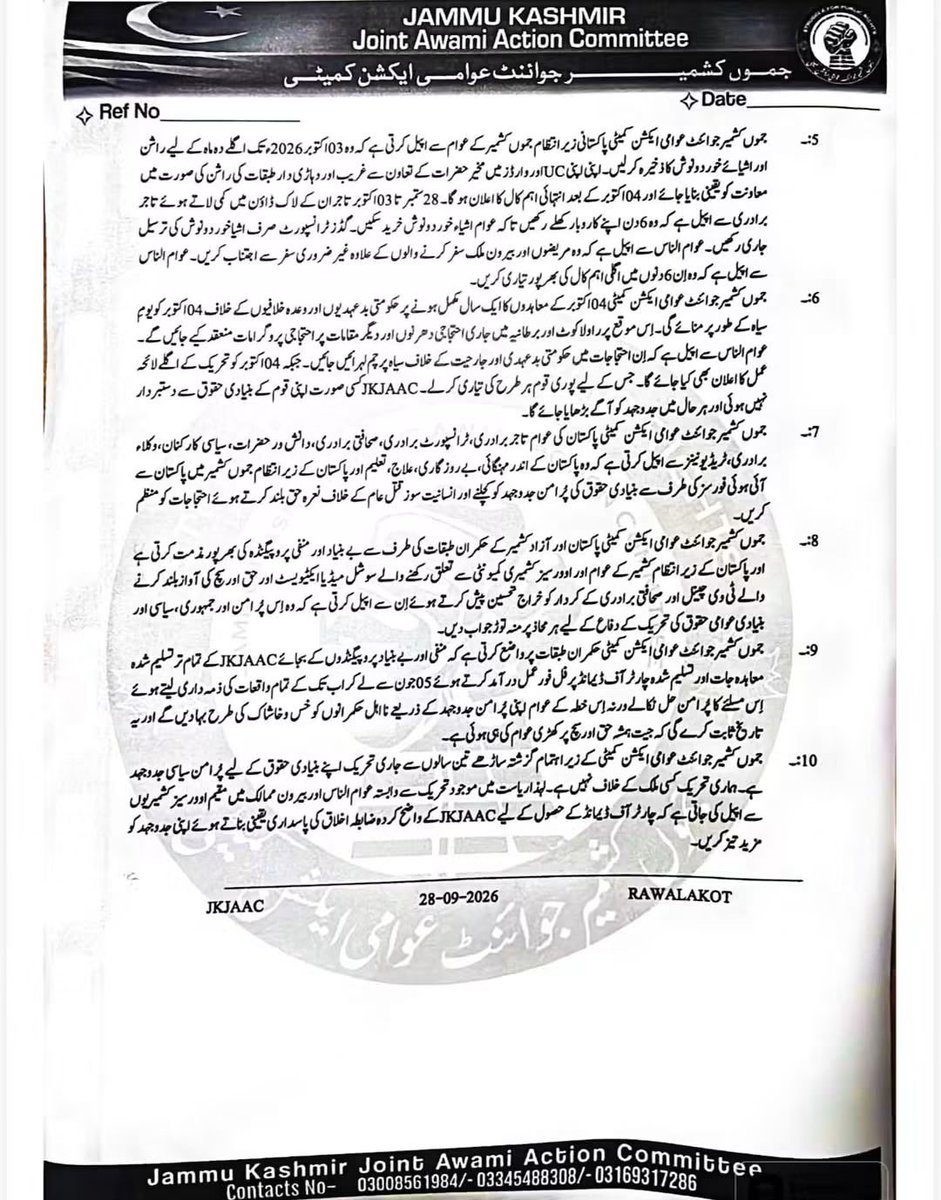 JAMMU KASHMIR
Joint Awami Action Committee
جموں کشمیر جوائنٹ عوامی ایکشن کمیٹی
Ref No
Date
5:۔ جموں کشمیر جوائنٹ عوامی ایکشن کمیٹی پاکستانی زیر انتظام جموں کشمیر کے عوام سے اپیل کرتی ہے کہ وہ 03 اکتوبر 2026ء تک اگلے دو ماہ کے لیے راشن
اور اشیائے خورد و نوش کا ذخیرہ کرلیں۔ اپنی اپنی UC اور وارڈز میں مخیر حضرات کے تعاون سے غریب اور دہاڑی دار طبقات کی راشن کی صورت میں
معاونت کو یقینی بنایا جائے اور 04 اکتوبر کے بعد انتہائی اہم کال کا اعلان ہوگا۔ 28 ستمبر تا 03 اکتوبر تاجران کے لاک ڈاؤن میں کمی لاتے ہوئے تاجر
برادری سے اپیل ہے کہ وہ 6 دن اپنے کاروبار کھلے رکھیں تاکہ عوام اشیاء خورد و نوش خرید سکیں۔ گڈز ٹرانسپورٹ صرف اشیا خورد و نوش کی ترسیل
جاری رکھیں۔ عوام الناس سے اپیل ہے کہ وہ مریضوں اور بیرون ملک سفر کرنے والوں کے علاوہ غیر ضروری سفر سے اجتناب کریں۔ عوام الناس
سے اپیل ہے کہ وہ ان 6 دنوں میں اگلی اہم کال کی بھرپور تیاری کریں۔
6:۔ جموں کشمیر جوائنٹ عوامی ایکشن کمیٹی 04 اکتوبر کے معاہدوں کا ایک سال مکمل ہونے پر حکومتی بدعہدیوں اور وعدہ خلافیوں کے خلاف 04 اکتوبر کو یوم
سیاہ کے طور پر منائے گی۔ اِس موقع پر راولاکوٹ اور برطانیہ میں جاری احتجاجی دھرنوں اور دیگر مقامات پر احتجاجی پروگرامات منعقد کیے جائیں گے۔
عوام الناس سے اپیل ہے کہ اِن احتجاجات میں حکومتی بدعہدی اور جارحیت کے خلاف سیاہ پرچم لہرائیں جائیں۔ جبکہ 04 اکتوبر کو تحریک کے اگلے لائحہ
عمل کا اعلان بھی کیا جائے گا۔ جس کے لیے پوری قوم ہر طرح کی تیاری کرلے۔ JKJAAC کسی صورت اپنی قوم کے بنیادی حقوق سے دستبردار
نہیں ہوئی اور ہر حال میں جدوجہد کو آگے بڑھایا جائے گا۔
7:۔ جموں کشمیر جوائنٹ عوامی ایکشن کمیٹی پاکستان کی عوام تاجر برادری، ٹرانسپورٹ برادری، صحافتی برادری، دانش ور حضرات، سیاسی کارکنان، وکلاء
برادری، ٹریڈ یونینز سے اپیل کرتی ہے کہ وہ پاکستان کے اندر مہنگائی، بے روزگاری، علاج، تعلیم اور پاکستان کے زیر انتظام جموں کشمیر میں پاکستان سے
آئی ہوئی فورسز کی طرف سے بنیادی حقوق کی پُرامن جدوجہد کو کچلنے اور انسانیت سوز قتل عام کے خلاف نعرہ حق بلند کرتے ہوئے احتجاجات کو منظم
کریں۔
8:۔ جموں کشمیر جوائنٹ عوامی ایکشن کمیٹی پاکستان اور آزاد کشمیر کے حکمران طبقات کی طرف سے بے بنیاد اور منفی پروپیگنڈہ کی بھرپور مذمت کرتی ہے
اور پاکستان کے زیر انتظام کشمیر کے عوام اور اوورسیز کشمیری کمیونٹی سے تعلق رکھنے والے سوشل میڈیا ایکٹیویسٹ اور حق اور سچ کی آواز بلند کرنے
والے ٹی وی چینل اور صحافتی برادری کے کردار کو خراج تحسین پیش کرتے ہوئے اِن سے اپیل کرتی ہے کہ وہ اِس پُرامن اور جمہوری، سیاسی اور
بنیادی عوامی حقوق کی تحریک کے دفاع کے لیے ہر محاذ پر منہ توڑ جواب دیں۔
9:۔ جموں کشمیر جوائنٹ عوامی ایکشن کمیٹی حکمران طبقات پر واضح کرتی ہے کہ منفی اور بے بنیاد پروپیگنڈوں کے بجائے JKJAAC کے تمام تر تسلیم شدہ
معاہدہ جات اور تسلیم شدہ چارٹر آف ڈیمانڈ پر فل فور عمل درآمد کرتے ہوئے 05 جون سے لے کر اب تک کے تمام واقعات کی ذمہ داری لیتے ہوئے
اِس مسئلے کا پُرامن حل نکالے ورنہ اِس خطہ کے عوام اپنی پُرامن جدوجہد کے ذریعے نااہل حکمرانوں کو خس و خاشاک کی طرح بہا دیں گے اور یہ
تاریخ ثابت کرے گی کہ جیت ہمیشہ حق اور سچ پر کھڑی عوام کی ہی ہوئی ہے۔
10:۔ جموں کشمیر جوائنٹ عوامی ایکشن کمیٹی کے زیر اہتمام گزشتہ ساڑھے تین سالوں سے جاری تحریک اپنے بنیادی حقوق کے لیے پُرامن سیاسی جدوجہد
ہے۔ ہماری تحریک کسی ملک کے خلاف نہیں ہے۔ لہٰذا ریاست میں موجود تحریک سے وابستہ عوام الناس اور بیرون ممالک میں مقیم اوورسیز کشمیریوں
سے اپیل کی جاتی ہے کہ چارٹر آف ڈیمانڈ کے حصول کے لیے JKJAAC کے واضح کردہ ضابطہ اخلاق کی پاسداری یقینی بناتے ہوئے اپنی جدوجہد کو
مزید تیز کریں۔
JKJAAC 28-09-2026 RAWALAKOT
جموں کشمیر جوائنٹ عوامی ایکشن
Jammu Kashmir Joint Awami Action Committee
Contacts No- 03008561984/- 03345488308/- 03169317286